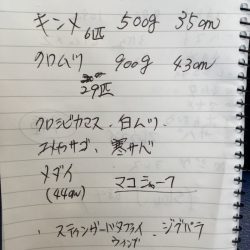 キンメ 6匹 500g 35cm
クロムツ 900g 43cm
29匹
クロシビカマス、白ムツ
ユメカサゴ、寒サバ
メダイ
(44cm) マコシャーク
スティングガードタフライ ジグパラ
ウイング